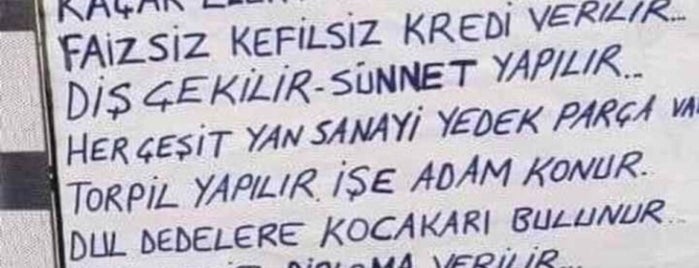 KAÇAK
FAİZSİZ KEFİLSİZ KREDİ VERİLİR...
DİŞ ÇEKİLİR-SÜNNET YAPILIR...
HER ÇEŞİT YAN SANAYİ YEDEK PARÇA
TORPİL YAPILIR. İŞE ADAM KONUR.
DUL DEDELERE KOCAKARI BULUNUR...
DİPLOMA VERİLİR...